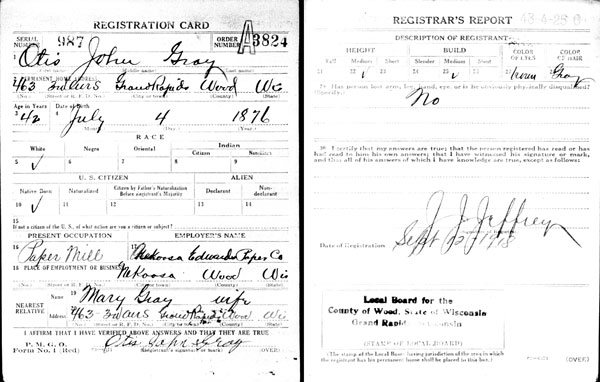 REGISTRATION CARD
SERIAL NUMBER 987 ORDER NUMBER A3824
Otis John Gray
PERMANENT HOME ADDRESS:
463 3rd Av S Grand Rapids Wood Wis
(No.) (Street or R. F. D. No.) (City or town) (County) (State)
Age in Years Date of Birth
42 July 4 1876
(Month) (Day) (Year)
RACE
White Negro Oriental Indian
Citizen Noncitizen
5 ✓ 6 7 8 9
U. S. CITIZEN ALIEN
Native Born Naturalized Citizen by Father's Naturalization Before Registrant's Majority Declarant Non-declarant
10 ✓ 11 12 13 14
15
If not a citizen of the U. S., of what nation are you a citizen or subject?
PRESENT OCCUPATION EMPLOYER'S NAME
16 Paper Mill 17 Nekoosa Edwards Paper Co
18 PLACE OF EMPLOYMENT OR BUSINESS:
Nekoosa Wood Wis
(No.) (County) (State)
NEAREST RELATIVE Name 19 Mary Gray wife
Address 20 463-3rd Av S Grand Rapids Wood Wis
I AFFIRM THAT I HAVE VERIFIED ABOVE ANSWERS AND THAT THEY ARE TRUE
P. M. G. O.
Form No. 1 (Red) Otis John Gray
(Registrant's signature or mark) (OVER)
REGISTRAR'S REPORT
DESCRIPTION OF REGISTRANT
HEIGHT BUILD COLOR OF EYES COLOR OF HAIR
Tall Medium Short Slender Medium Stout
21 22 ✓ 23 24 25 ✓ 26 27 Brown 28 Gray
29 Has person lost arm, leg, hand, eye, or is he obviously physically disqualified?
(Specify.)
No
30 I certify that my answers are true; that the person registered has read or has
had read to him his own answers; that I have witnessed his signature or mark,
and that all of his answers of which I have knowledge are true, except as follows:
J. J. Jeffrey
Date of Registration Sept 12 1918
Local Board for the
County of Wood, State of Wisconsin
Grand Rapids, Wisconsin
(STAMP OF LOCAL BOARD)
(The stamp of the Local Board having jurisdiction of the area in which
the registrant has his permanent home shall be placed in this box.)
(OVER)